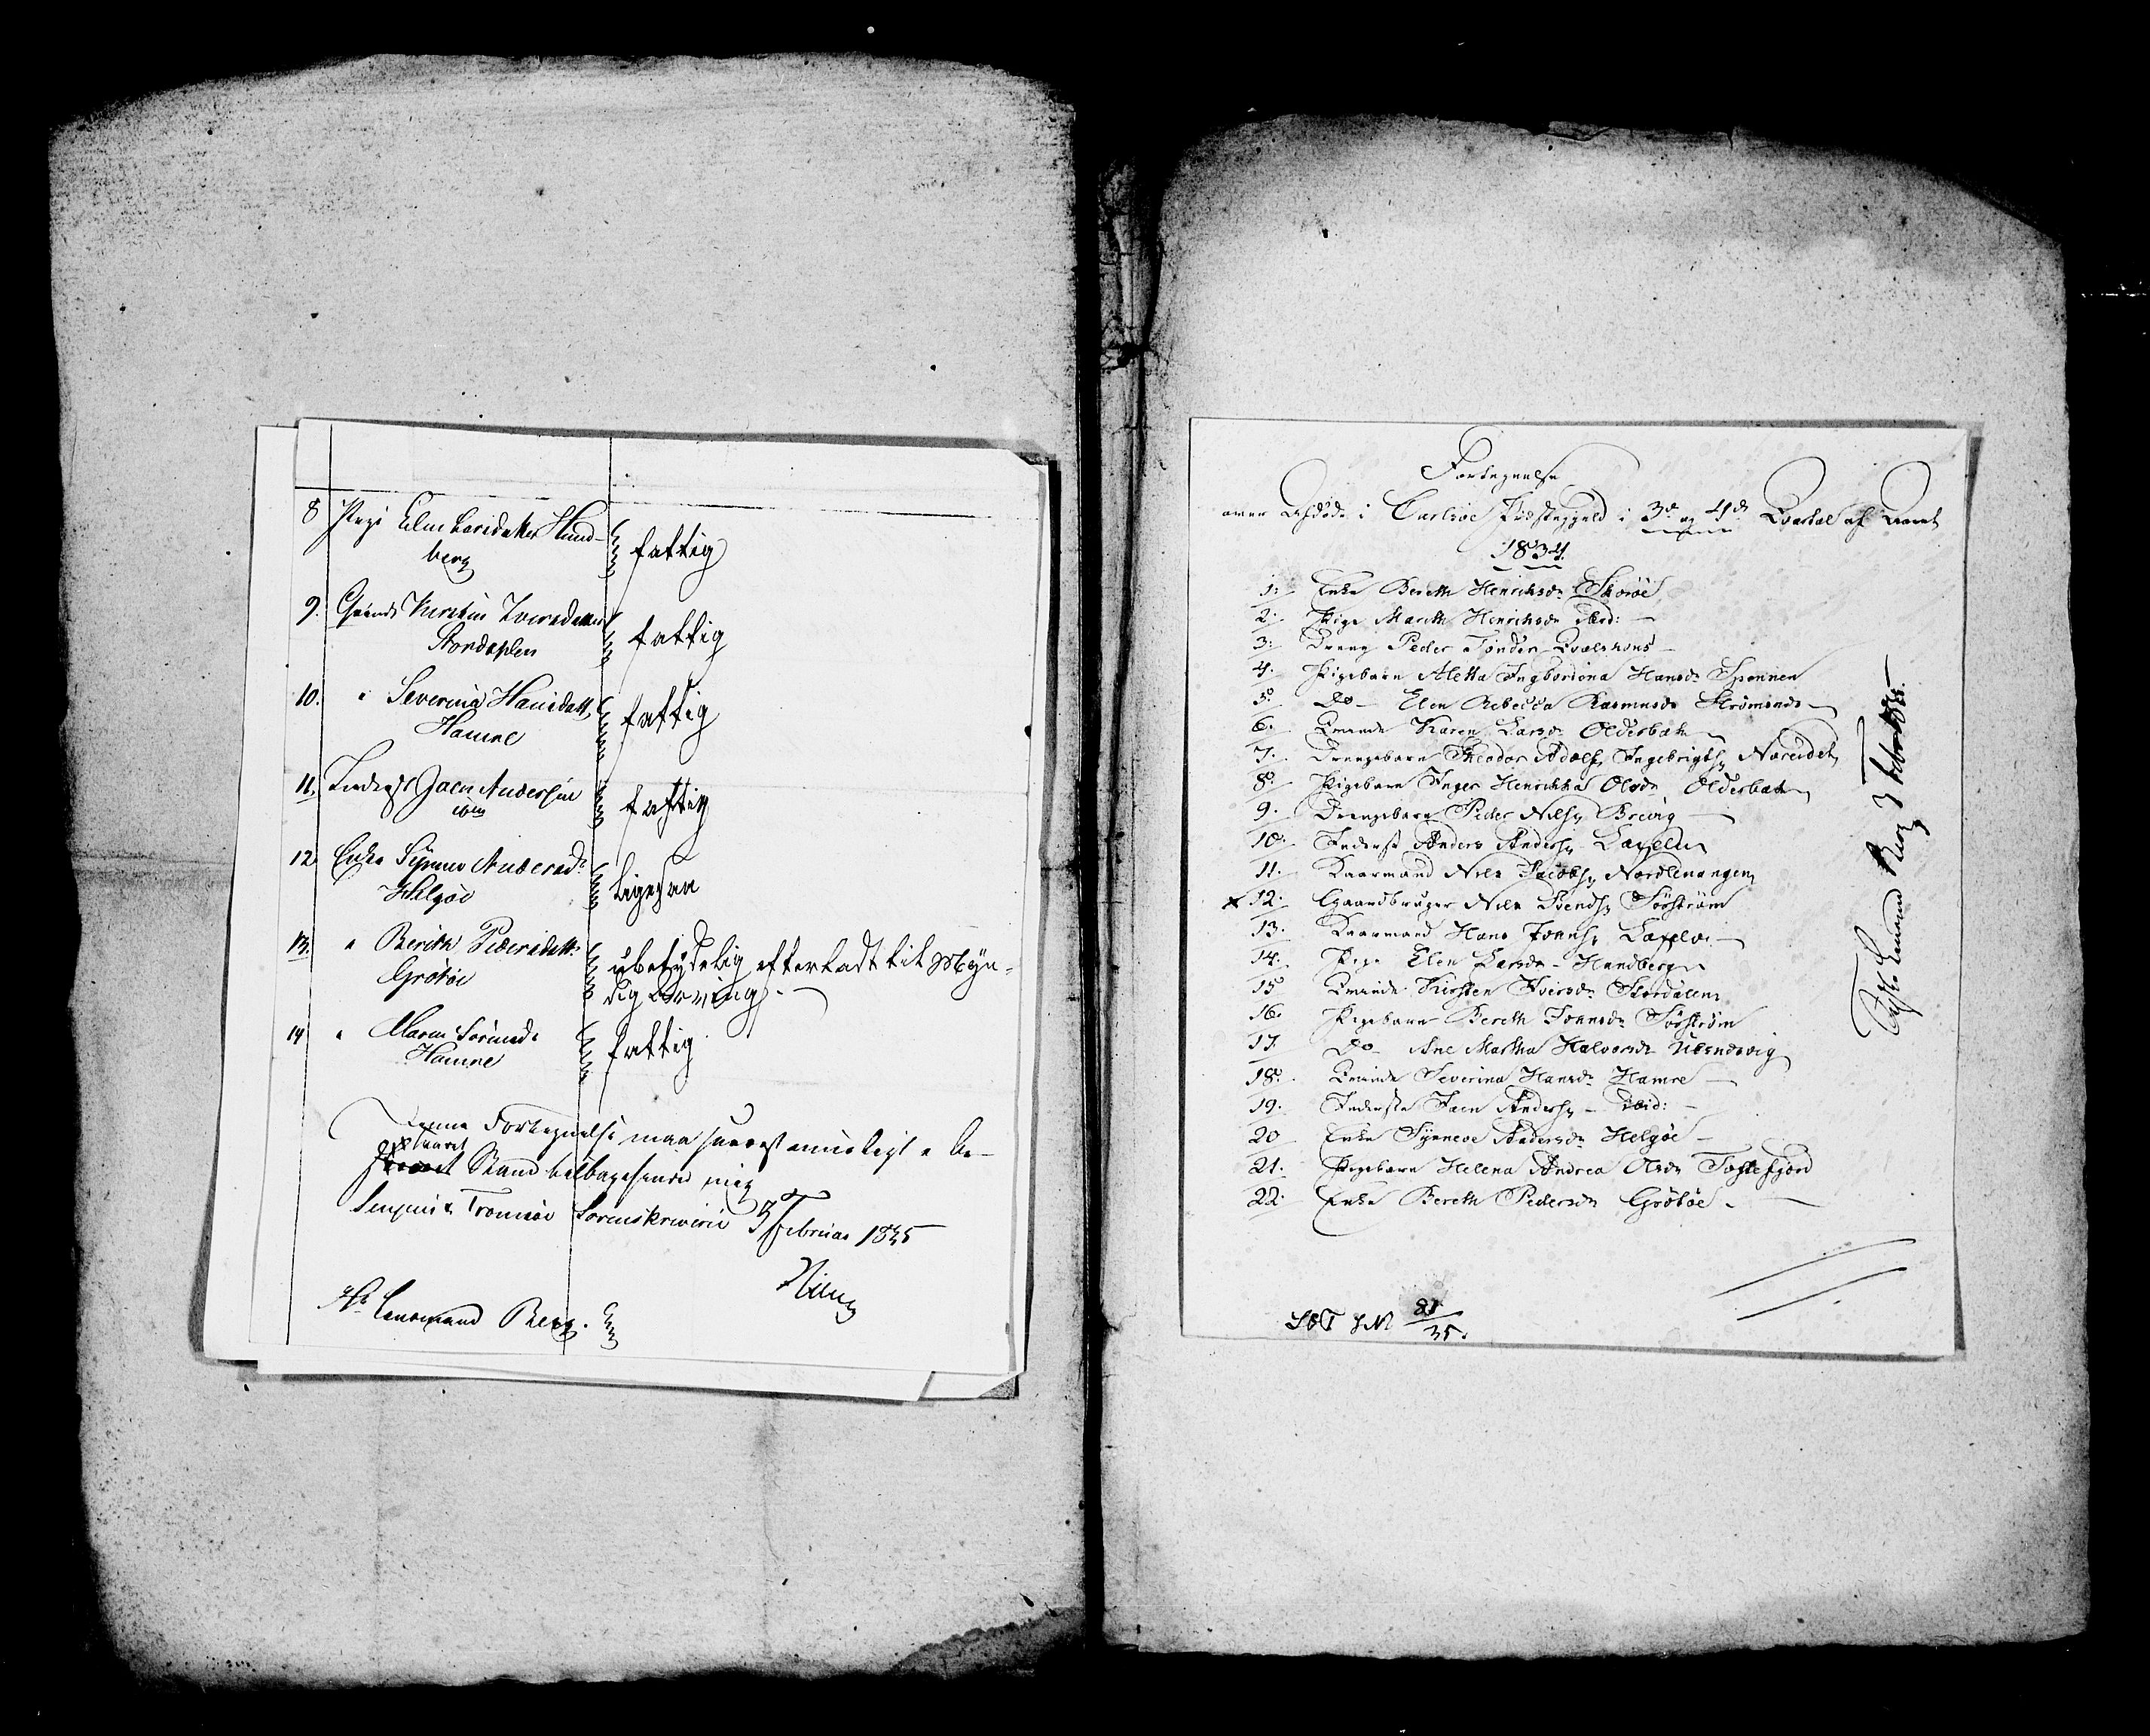 8 Pige Elen Larsdatter Hund-
berg
fattig
9. Qvinde Kirsten Iversdatter
Stordahlen
fattig
10. " Severina Hansdatt.
Hamre
fattig
11. Inderst Jaen Andersen
ibm
fattig
12 Enke Synnev Andersd.
Helgøe
ligesaa
13. " Berith Pedersdatt.
Grøtøe
ubetydelig efterladt til Myn-
dig Arving.
14 " Maren
Hamre
fattig
Denne Fortegnelse maa snarest mueligt i be-
svaret Stand tilbagesendes mig
Senjens & Tromsøe Sorenskriverie 3 Februar 1835
Hr Lensmand Berg.
Fortegnelse
over Afdøde i Carlsøe Præstegjeld i 3de og 4de Qvartal af Aaret
1834.
1. Enke Bereth Henriksdr Skorøe
2. Pige Mareth Henriksdr ibid: —
3. Dreng Peder Tønder —
4. Pigebarn Aletta Ingbordina Hansdr Spennen
5. Do — Elen Rebecca Rasmusdr
6. Qvinde Karen Larsdr Olderbak
7. Drengebarn Theodor Adolf Ingebrigts. Noreidet
8. Pigebarn Inger Henrikka Olsdr Olderbak
9. Drengebarn Peder Nils. Breivig —
10. Inderst Anders Anders.
11. Kaarmand Nils Jacobs. Nordlenangen
x 12. Gaardbruger Nils Svends. Sørstrøm
13. Kaarmand Hans Johns.
14. Pige Elen Larsdr — Hundberg
15 Qvinde Kirsten Iversdr Stordalen
16. Pigebarn Bereth Johnsdr Sørstrøm
17. Do — Ane Martha Halvorsdr
18. Qvinde Severina Hansdr Hamre —
19. Inderste Jaen Anders. — ibid: —
20 Enke Synneve Andersdr Helgøe —
21. Pigebarn Helena Andrea Olsdr Toftefjord
22. Enke Bereth Pedersdr Grøtøe. —
S&T JN 21/35.
Lensmand Berg 3 Febr 1835.